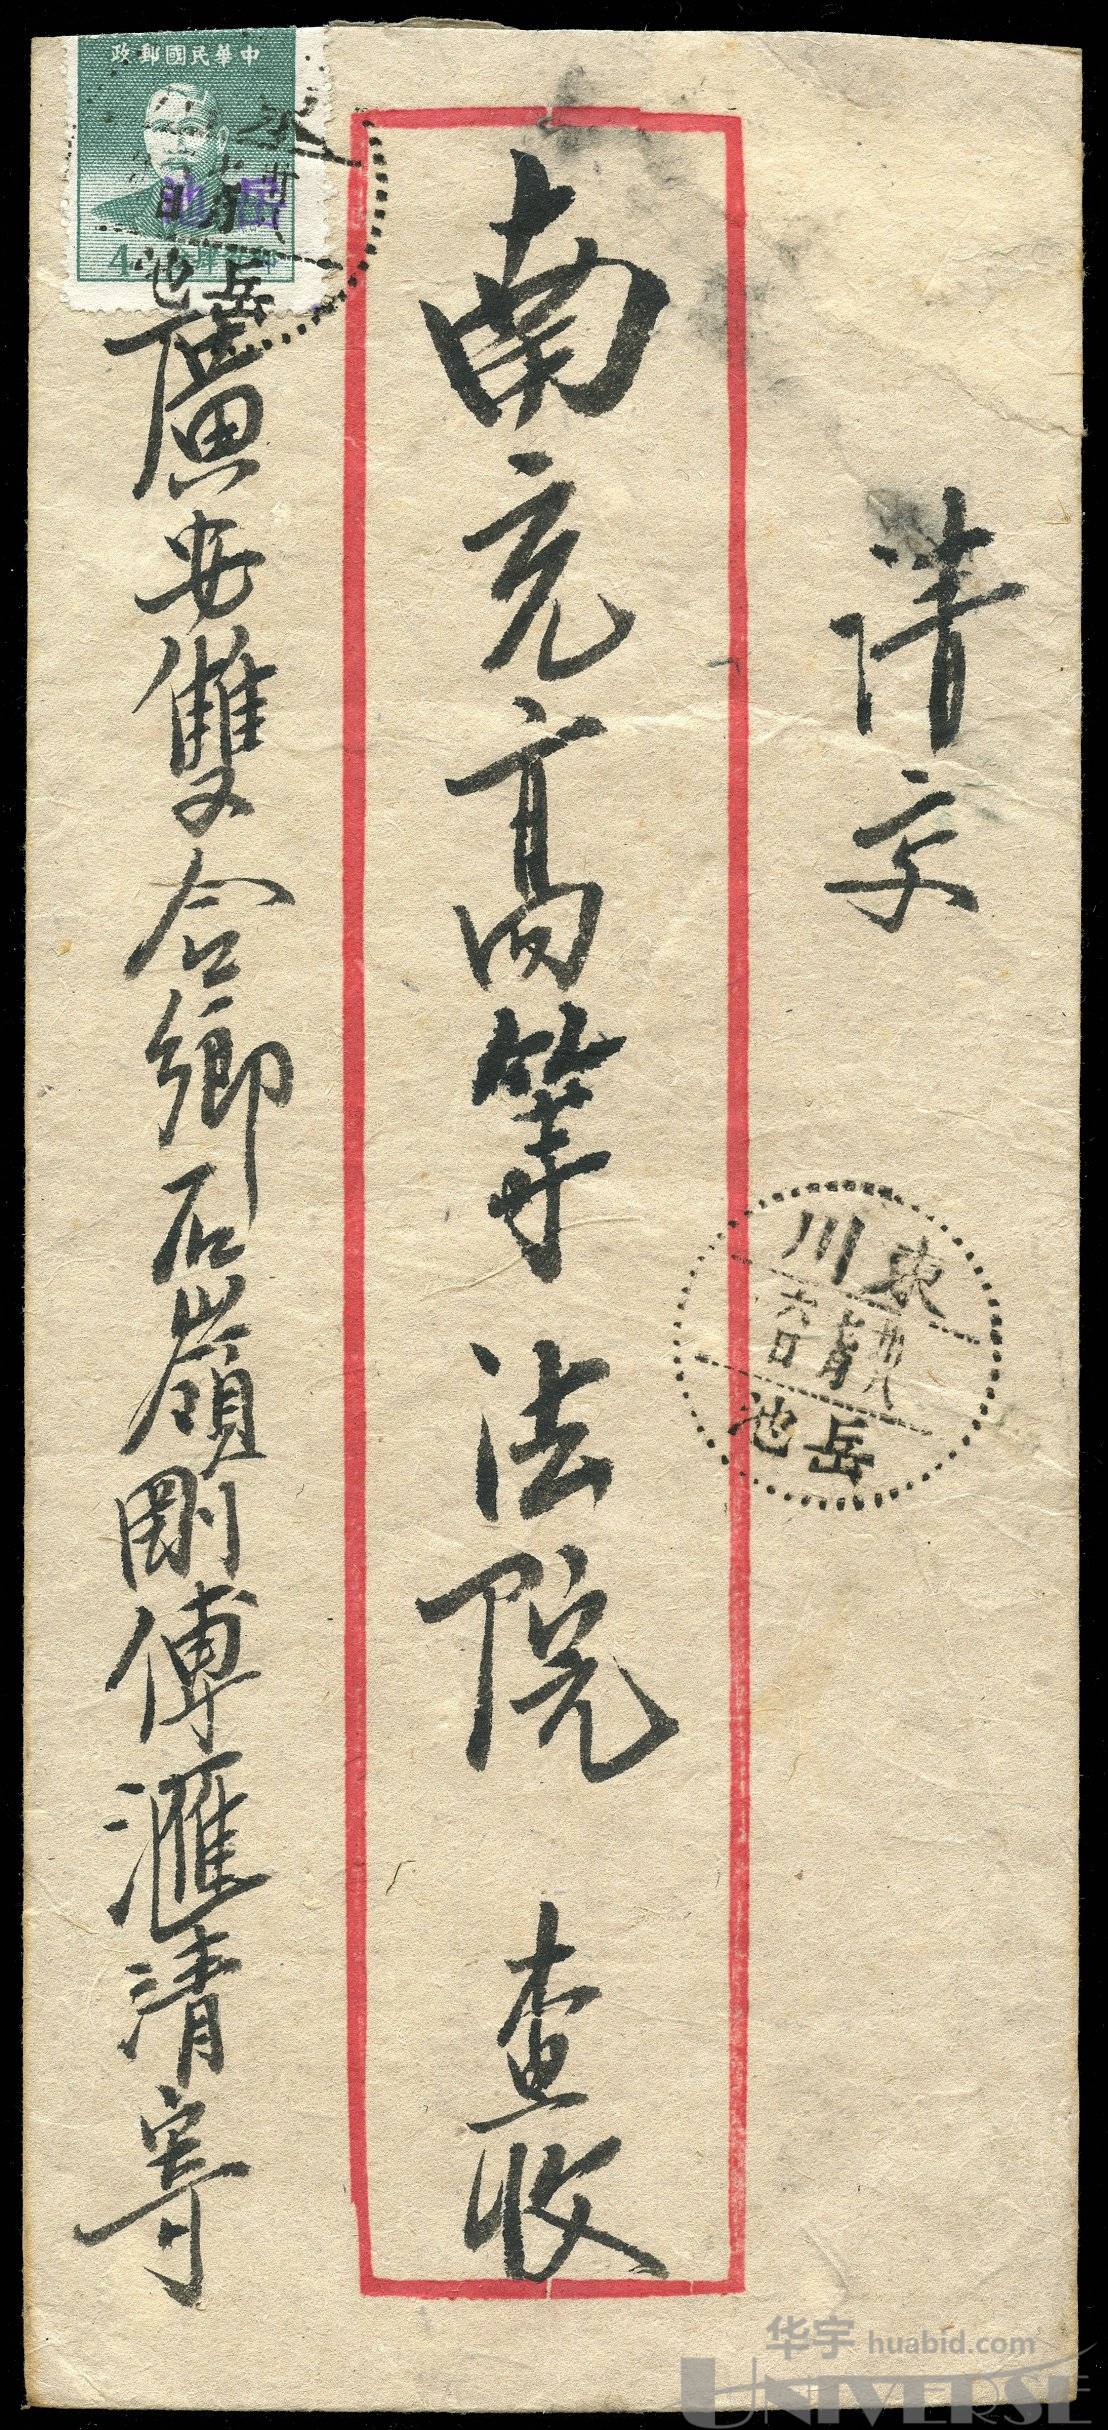 清字
南充高等法院 查收
廣安雙合鄉石嶺剛傅滙清寄
中華民國郵政
4
岳池
岳池
東川
六日
岳池
华宇 huabid.com
UNIVERSE